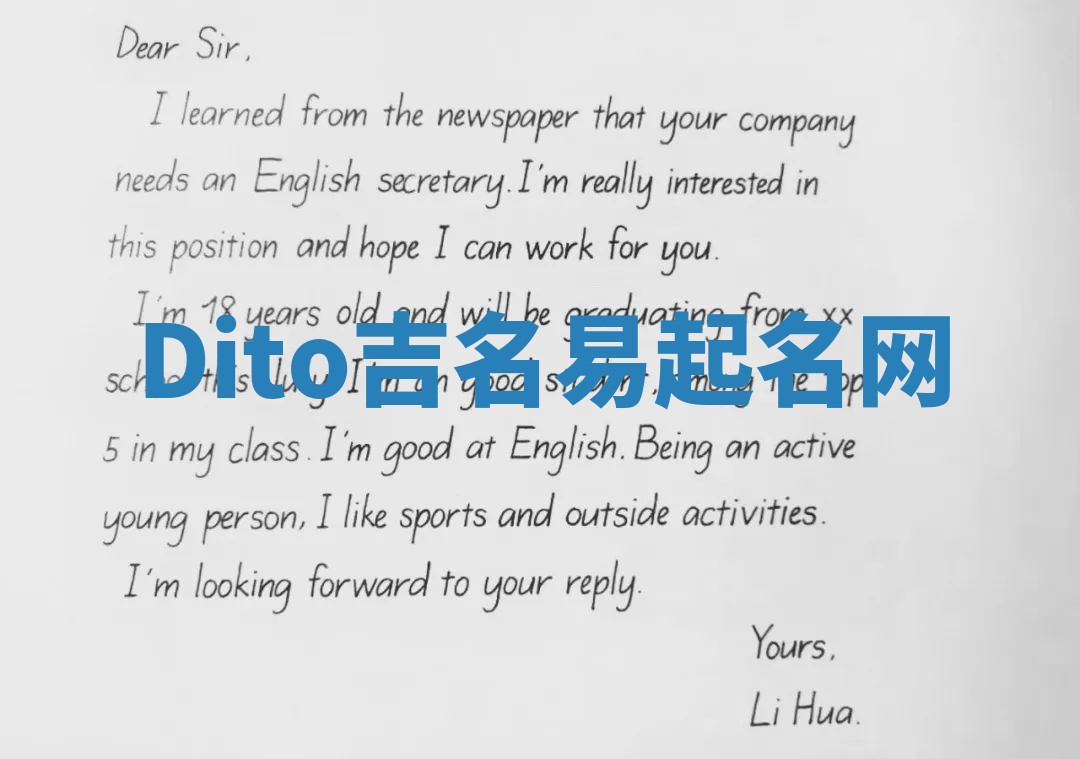 Dear Sir,
I learned from the newspaper that your company
needs an English secretary. I'm really interested in
this position and hope I can work for you.
I'm 18 years old and will be graduating from xx
Dito吉名易起名网
school this July. I'm an good student, among the top
5 in my class. I'm good at English. Being an active
young person, I like sports and outside activities.
I'm looking forward to your reply.
Yours,
Li Hua.